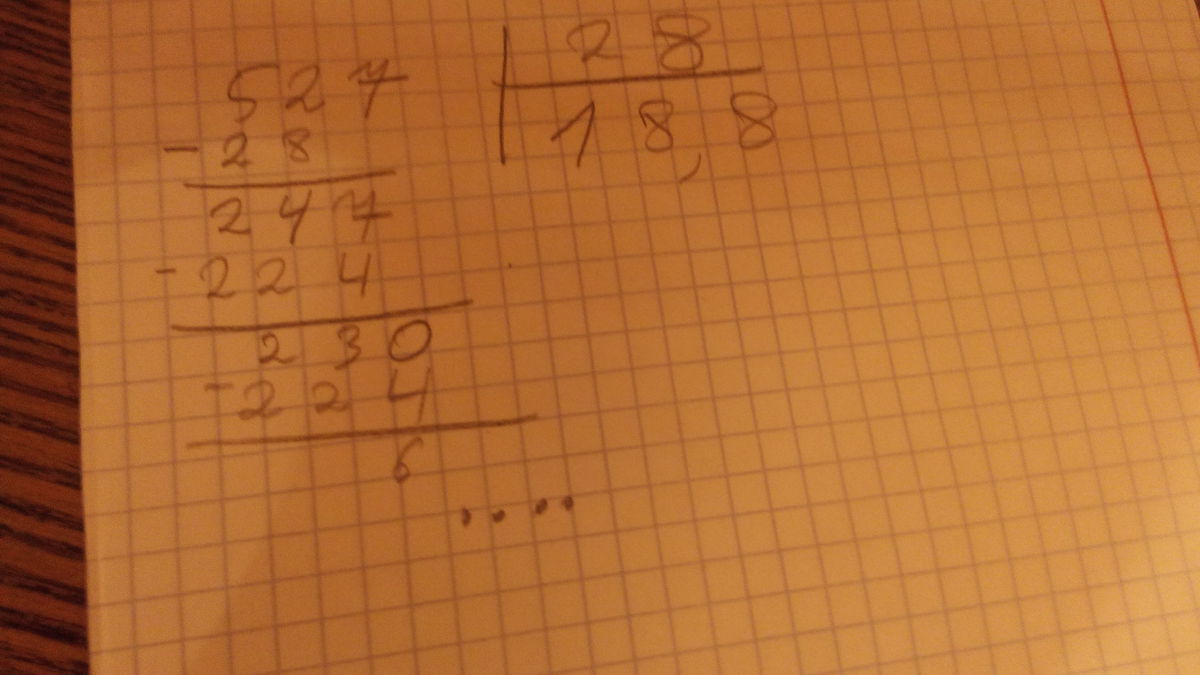 527 | 28
- 28 | 18,8
247
- 224
230
- 224
6
....